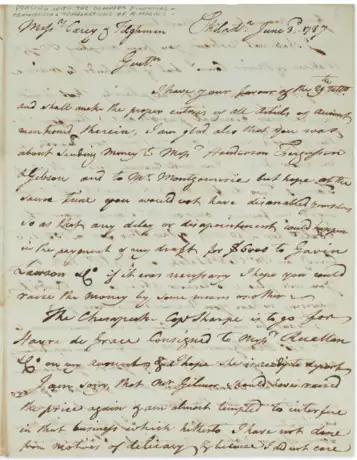 DEALING WITH THE COMMON FINANCIAL
Mess.rs Carey & Tilghman Philad.a June 3. 1787
Gent.n
I have your favour of the 29th
and shall make the proper entries of all
mentioned therein, I am glad also that you was
about sending Money to Mess.rs Henderson Fergusson
& Gibson and to Mr. Montgomerie but hope at the
same time you would not have disabled
so as that any delay or disapointment could
in the payment of my draft for $5000 to Gavin
Lawson & Co if it was necessary I hope you could
raise the money by some means or other
The Chesapeak Cap.t Tharpe is to go for
Havre de Grace Consigned to Mess.rs Ruellan
& Co on our account & I hope She is ready to depart
I am sorry that Mr. Gilmor should have raised
the price again & am almost tempted to interfere
in that business which hitherto I have not done
from motives of delicacy & because I did not care